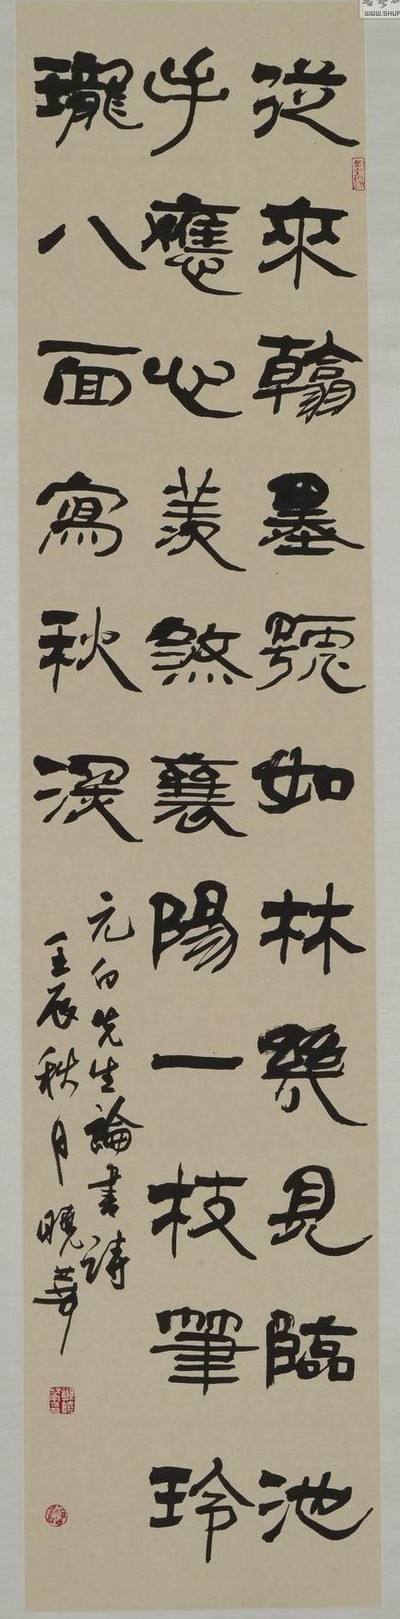 從來翰墨號如林幾見臨池
手應心羨煞襄陽一枝筆玲
瓏八面寫秋深
元白先生論書詩
壬辰秋月曉華
WWW.SHUF